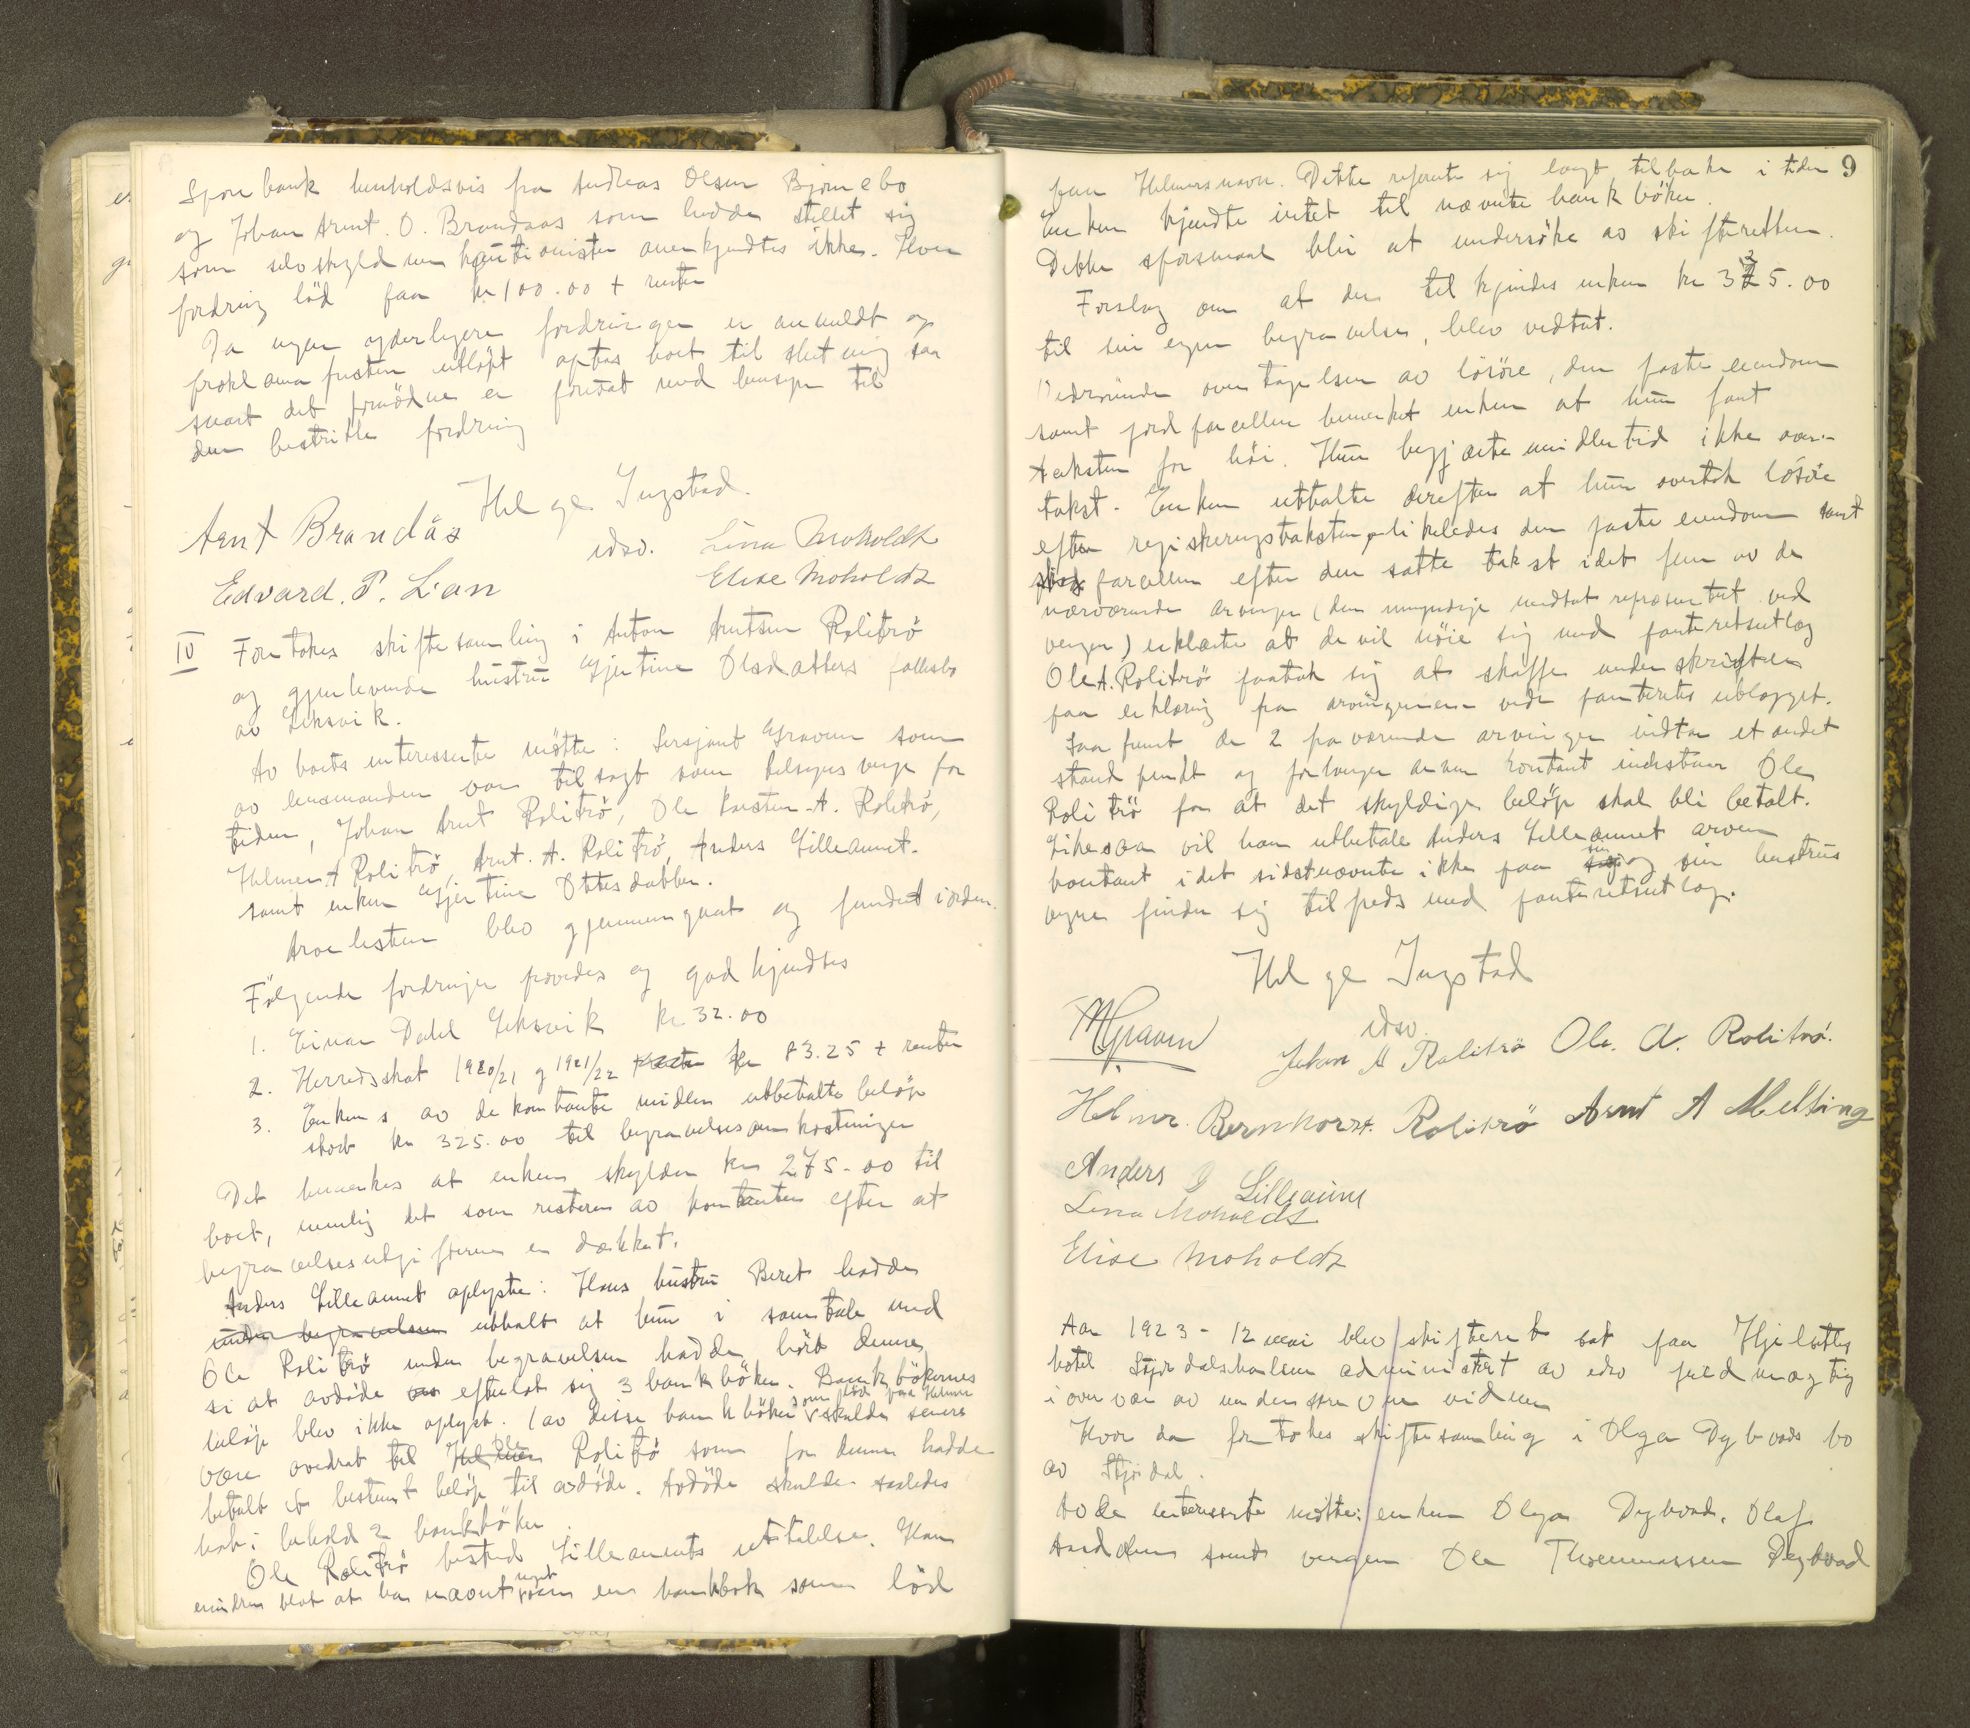 Sparebank henholdsvis fra Andreas Olsen Bjørnebo
og Johan Arnt. O. Brandaas som hadde stillet sig
som selvskyldnerkautionister anerkjendtes ikke. Hver
fordring löd paa kr 100.00 + renter
Da ingen yderligere fordringer er anmeldt og
proklama fristen utløpt optas boet til slutning saa
snart det fornødne er foretat med hensyn til
den bestridte fordring
Helge Ingstad.
Arnt Brandås
edsv. Lina Moholdt
Edvard. P. Lian
Elise Moholdt
IV Foretokes skiftesamling i Anton Arntsen Rolitrö
og gjenlevende hustru Gjertine Olsdatters fællesbo
av Leksvik.
Av boets interesserte mötte: Sersjant Graven som
av lensmanden var tilsagt som tilsynsverge for
tiden, Johan Arnt Rolitrö, Ole Karsten A. Rolitrö,
Helmer A Rolitrö, Arnt. A. Rolitrö, Anders Lilleaunet.
samt enken Gjertine Ottesdatter.
Arvelisten blev gjennemgaat og fundet i orden.
Følgende fordringer prøvedes og godkjendtes
1. Einar Dahl Leksvik kr 32.00
2. Herredsskat 1920/21 og 1921/22 kr 83.25 + renter
3. Enkens av de kontante midler utbetalte beløp
stort kr 325.00 til begravelsesomkostninger
Det bemerkes at enken skylder kr 275-00 til
boet, nemlig det som resterer av kontanten efter at
begravelsesutgifterne er dækket.
Anders Lilleaunet oplyste: Hans hustru Beret hadde
under begravelsen uttalt at hun i samtale med
Ole Rolitrö under begravelsen hadde hört denne
si at avdöde efterlot sig 3 bankböker. Bankbökernes
belöp blev ikke oplyst. 1 av disse bankböker som löd paa Helmer skulde senere
være overdrat til Helmer Ole Rolitrö som for denne hadde
betalt et bestemt belöp til avdöde. Avdöde skulde saaledes
hat i behold 2 bankböker.
Ole Rolitrö bestred Lilleaunets uttalelse. Han
mindes blot at ha nævnt noget om en bankbok som löd
9
paa Helmers navn. Dette refererte sig langt tilbake i tiden
Enken kjendte intet til nævnte bankböker.
Dette spørsmaal blir at undersöke av skifteretten.
Forslag om at der tilkjendes enken kr 325.00
til sin egen begravelse, blev vedtat.
Vedrørende overtagelsen av lösöre, den faste eiendom
samt jordparcellen bemerket enken at hun fant
taksten for höi. Hun begjærte imidlertid ikke over-
takst. Enken uttalte derefter at hun overtok lösöre
efter registreringstaksten, likeledes den faste eiendom samt
parcellen efter den satte takst idet fem av de
nærværende arvinger (den umyndige medtat repræsentert ved
vergen) erklærte at de vil nöie sig med panteretsutlæg
Ole A. Rolitrö paatok sig at skaffe underskriften
paa erklæring fra arvingernes vedr panteretsutlægget.
Saa fremt de 2 fraværende arvinger indtar et andet
standpunkt og forlanger arven kontant indestaar Ole
Rolitrö for at det skyldige belöp skal bli betalt.
Likesaa vil han utbetale Anders Lilleaunet arven
kontant idet sidstnævnte ikke paa sin og sin hustrus
vegne finder sig tilfreds med panteretsutlæg.
Helge Ingstad
edsv.
M Graven
Johan A Rolitrö Ole. A. Rolitrö.
Helmer. Bernhard. Rolitrö Arnt A Melting
Anders J Lilleaune
Lina Moholdt
Elise Moholdt
Aar 1923 - 12 mai blev skifteret sat paa Hjelsettes
hotel Stjørdalshalsen administrert av edsv fuldmægtig
i overvær av underskrevne vidner
Hvor da foretokes skiftesamling i Olga Dybvads bo
av Stjørdal.
Av de interesserte mötte: enken Olga Dybvad. Olaf
samt vergen Ole Thomassen Dybvad